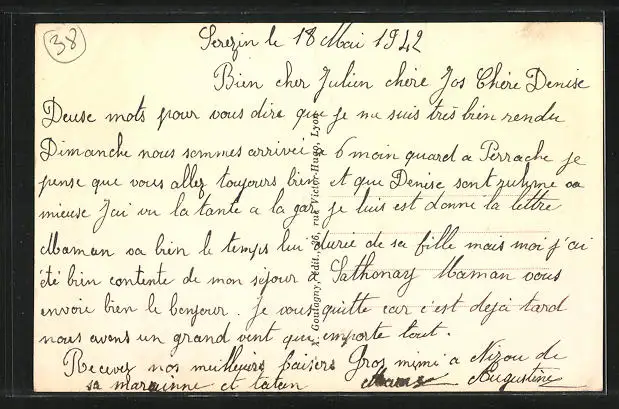 38
Serezin le 18 Mai 1942
Bien cher Julien chère Jos Chère Denise
Deuse mots pour vous dire que je me suis très bien rendu
Dimanche nous sommes arrivée a 6 moin quard a Perrache je
pense que vous allez toujours bien et que Denise sont ruhme va
mieuse J'ai vu la tante a la gar je luis est donné la lettre
Maman va bien le temps lui durée de sa fille mais moi j'ai
été bien contente de mon séjour a Sathonay Maman vous
envoie bien le bonjour. je vous quitte car c'est deja tard
nous avons un grand vent que emporte tout.
Recevez nos meilleurs baisers Gros mimi a Nizou de
sa marainne et tatan Augustine
X. Goutagny, édit., 26, rue Victor-Hugo, Lyon